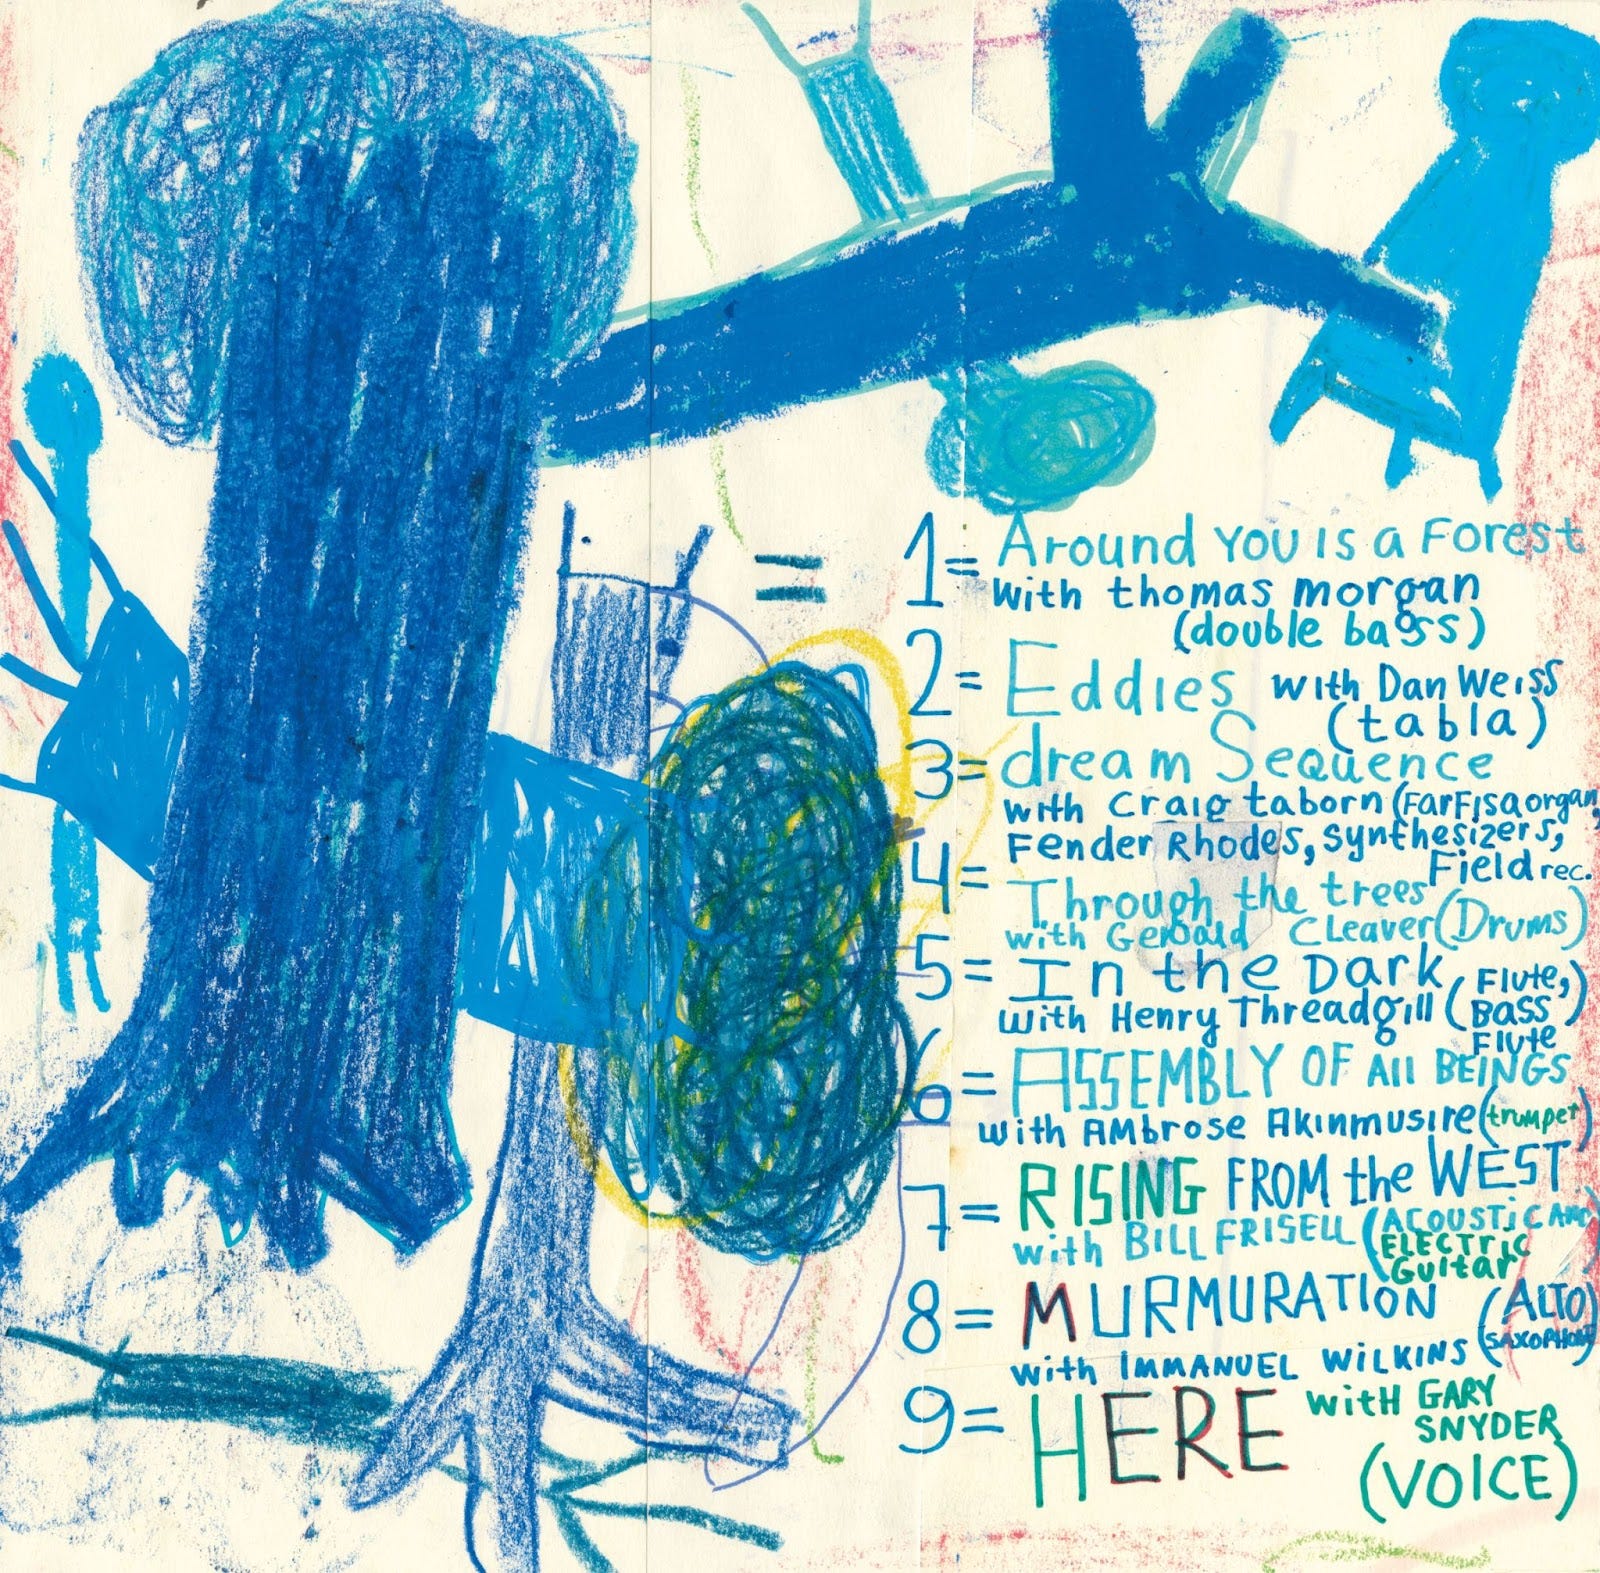 =
1= Around You is a Forest
with thomas morgan
(double bass)
2= Eddies with Dan Weiss
(tabla)
3= dream Sequence
with Craig taborn (Farfisa organ,
Fender Rhodes, Synthesizers,
Field rec.
4= Through the trees
with Gerald Cleaver (Drums)
5= In the Dark (Flute,
with Henry Threadgill (Bass)
Flute
6= ASSEMBLY OF All BEINGS
with AMbrose Akinmusire (trumpet)
7= RISING FROM the WEST
with BILL FRISELL (ACOUSTIC AND
ELECTRIC
Guitar
8= MURMURATION (ALTO)
with IMMANUEL WILKINS (SAXOPHONE)
9= HERE with GARY
SNYDER
(VOICE)